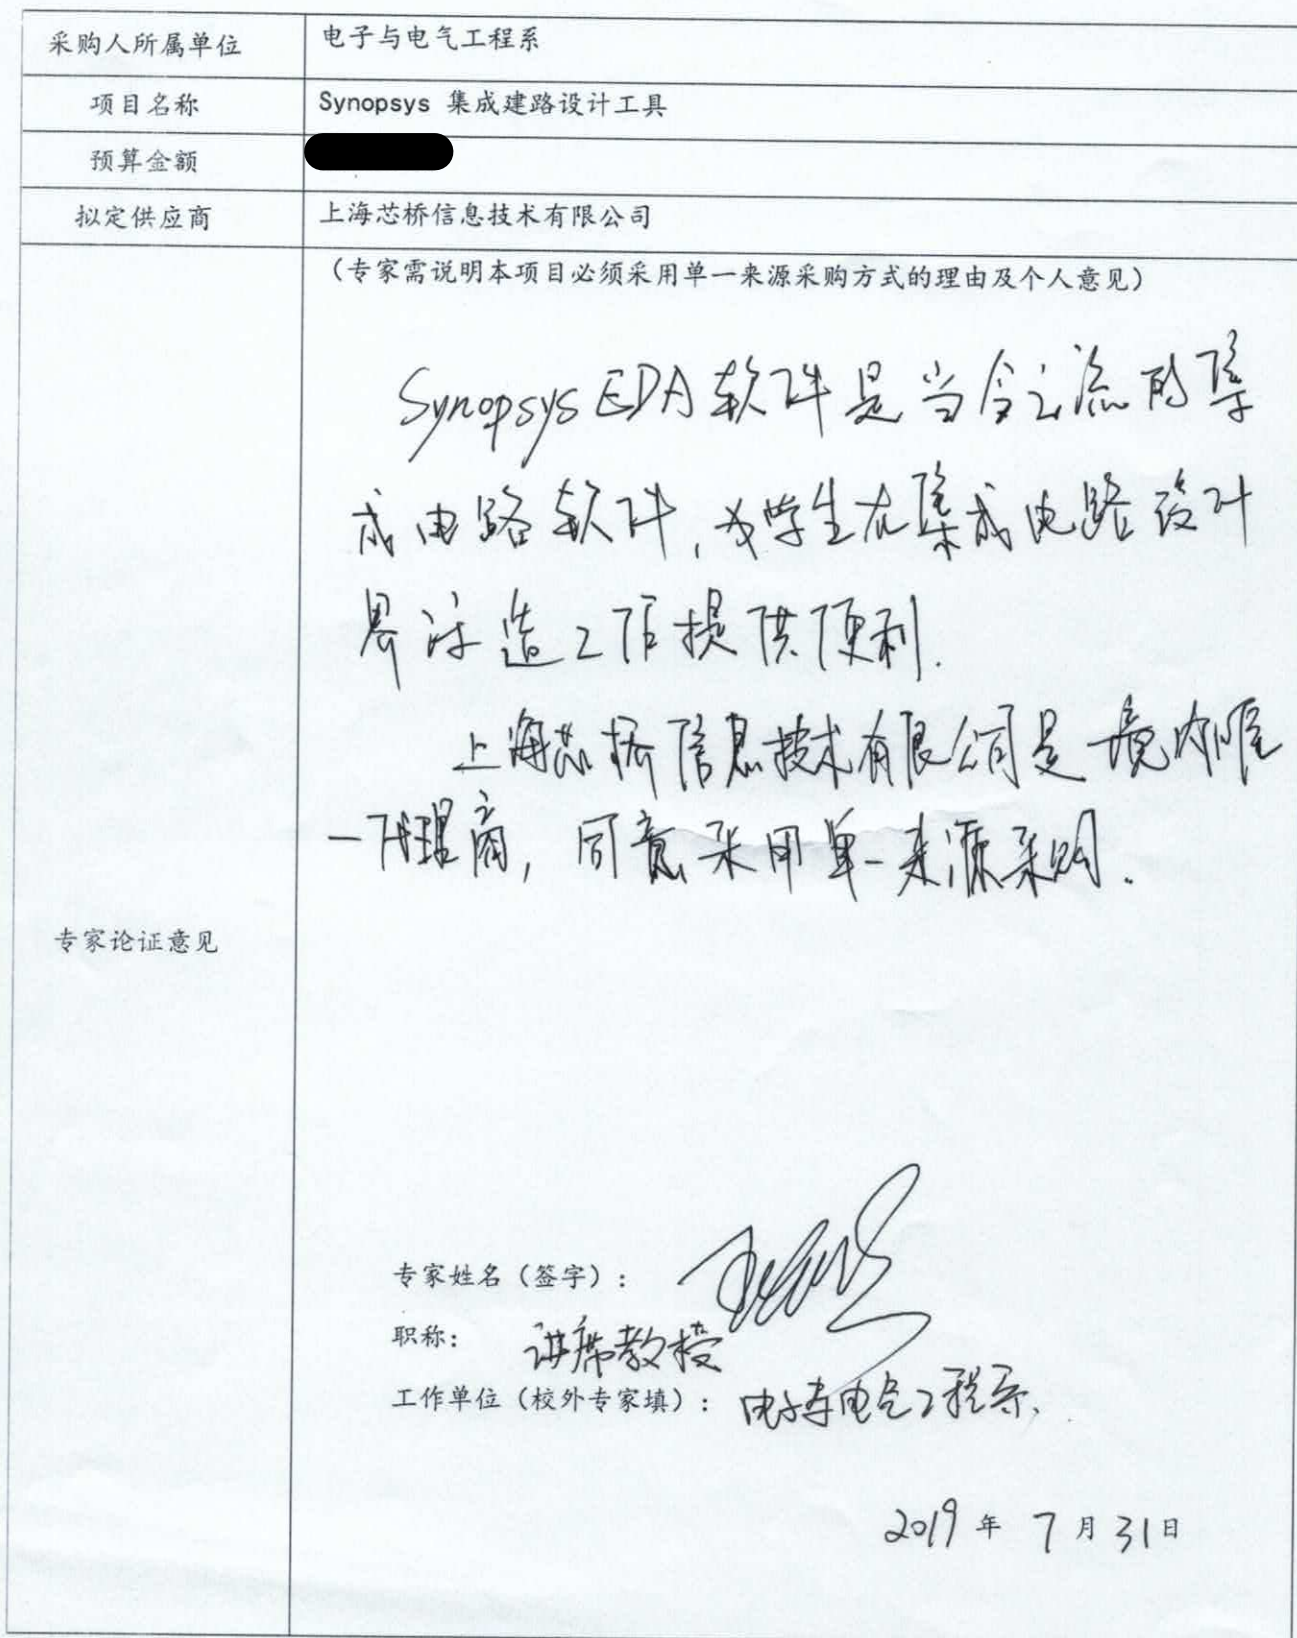 采购人所属单位 电子与电气工程系
项目名称 Synopsys 集成建路设计工具
预算金额
拟定供应商 上海芯桥信息技术有限公司
（专家需说明本项目必须采用单一来源采购方式的理由及个人意见）
Synopsys EDA 软件是当今主流的集
成电路软件，为学生在集成电路设计
造工作提供便利.
上海芯桥信息技术有限公司是境内唯
一代理商，同意采用单一来源采购.
专家论证意见
专家姓名（签字）：
职称： 讲席教授
工作单位（校外专家填）： 电子与电气工程系.
2019 年 7 月 31 日